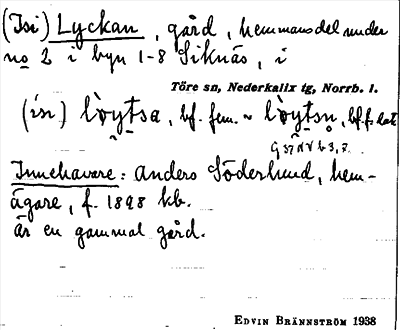 (Isi) Lyckan, gård, hemmansdel under
no 2 i byn 1-8 Siknäs, i
Töre sn, Nederkalix tg, Norrb. l.
(ísi) lòytsa, bf. fem. ~ lòytsn, bf. f. dat
Innehavare: Anders Söderlund, hem-
ägare, f. 1898 kb.
är en gammal gård.
EDVIN BRÄNNSTRÖM 1938